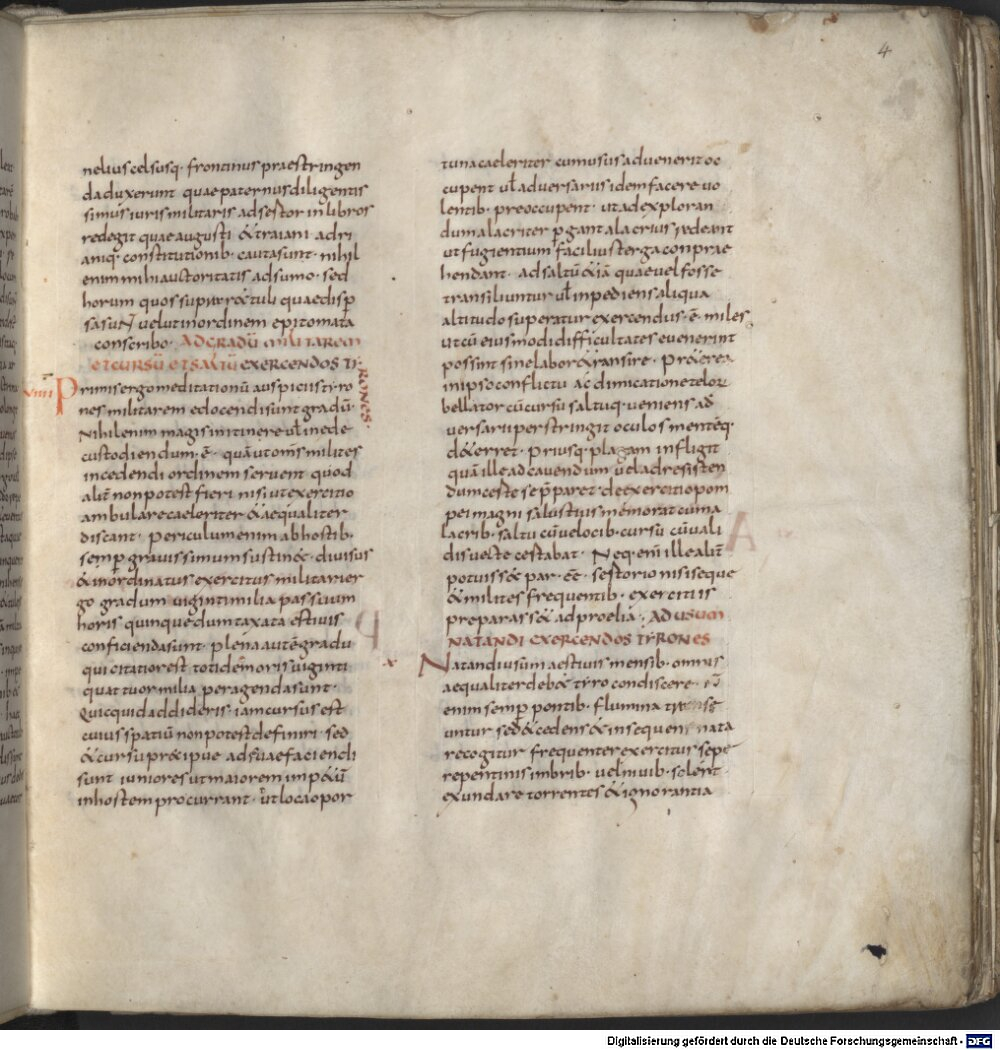 4
nelius celsusq. frontinus praestringen
da duxerunt quae paternus diligentis
simus iuris militaris adsertor in libros
redegit quae augusti & traiani adri
aniq. constitutionib. cautasunt. nihil
enim mihi auctoritatis adsumo. sed
horum quos supra r&tuli quae disp
sa sunt velut in ordinem epitomata
conscribo. AD GRADŪ MILITAREM
ET CURSŪ ET SALTŪ EXERCENDOS TI
RONES.
VIIII Primis ergo meditationū auspiciis tyro
nes militarem edocendi sunt gradū.
Nihil enim magis initinere ul in ede
custodiendum. ē. quā ut oms milites
incedendi ordinem servent quod
alit non potest fieri nisi ut exercitio
ambulare caeleriter & aequaliter
discant. periculum enim ab hostib.
semp gravissimum sustin&. divisus
& inordinatus exercitus militari er
go gradum viginti milia passuum
horis quinque dum taxata estivis
conficienda sunt. plena autē gradu
qui citatior est totidē moris viginti
quattuor milia peragenda sunt.
Quicquid addideris. iam cursus est
cuius spatiū non potest definiri. sed
& cursu pr&cipue adsuaefaciendi
sunt iuniores ut maiorem imp&ū
inhostem procurrant. ut loca opor
tuna caeleriter cum usus advenerit oc
cupent ul adversariis idem facere vo
lentib. preoccupent. ut ad exploran
dum alacriter pgant alacrius redeant
ut fugientium facilius terga conprae
hendant. ad saltū &iā quae vel fosse
transiliuntur ul inpediens aliqua
altitudo superatur exercendus. ē. miles
ut cū eiusmodi difficultates evenerint
possint sine labor& ransire. Pr&erea
in ipso conflictu ac dimicatione telor
bellator cū cursu saltuq. veniens ad
versarii perstringit oculos mentēq.
d&erret. priusq. plagam infligit
quā ille ad cavendum vel ad resisten
dum ceste se pparet. de exercitio pom
pei magni salustius memorat cum a
lacrib. saltu cū velocib. cursu cū vali
dis vecte certabat. Neq. enī ille aliṫ
potuiss& par. eē. sertorio nisi se que
& milites frequentib. exercitiis
preparass& ad proelia. AD USUM
NATANDI EXERCENDOS TYRONES
X Natandi usum aestivis mensib. omnis
aequaliter deb& tyro condiscere. n̄
enim semp pontib. flumina
untur sed & cedens & insequens nata
re cogitur frequenter exercitus sepe
repentinis imbrib. vel nivib. solent
exundare torrentes & ignorantia
Digitalisierung gefördert durch die Deutsche Forschungsgemeinschaft - DFG